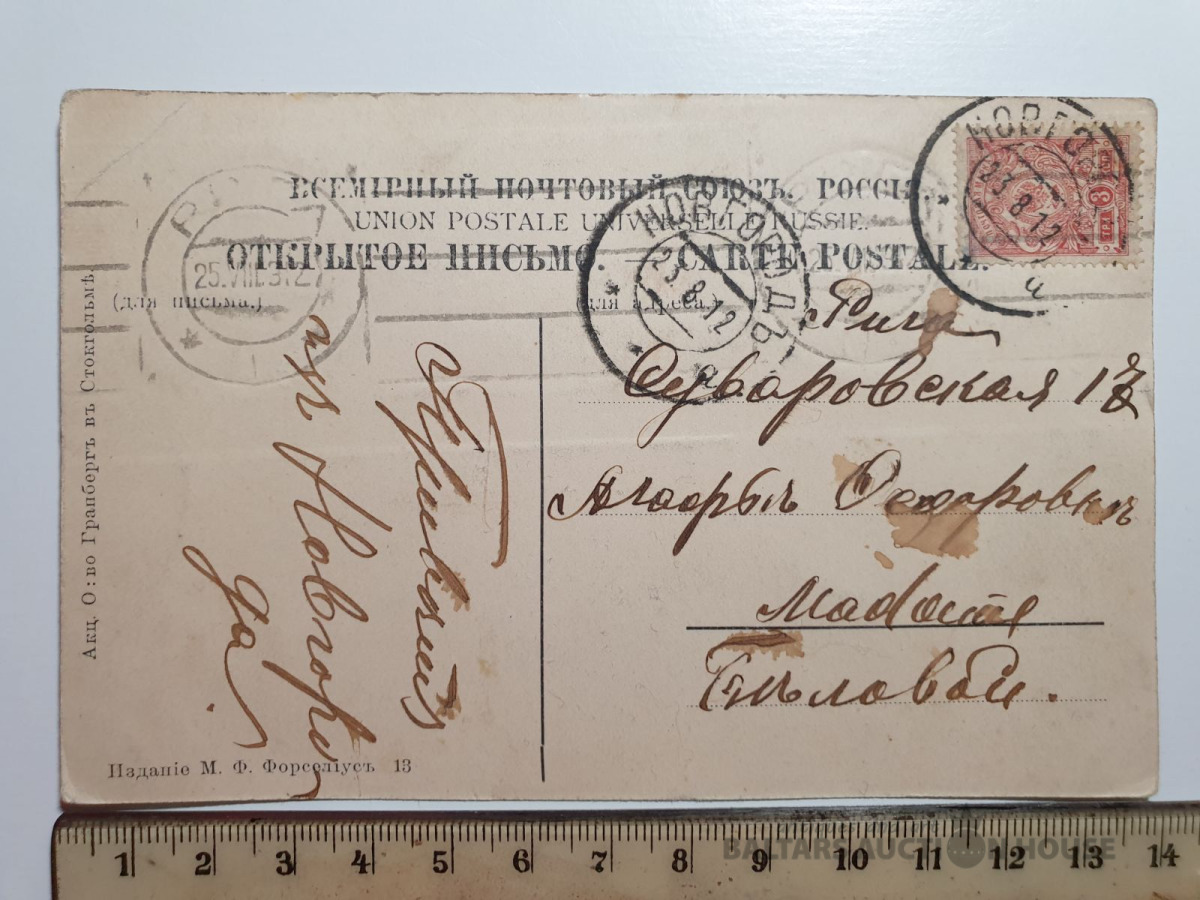 ВСЕМІРНЫЙ ПОЧТОВЫЙ СОЮЗЪ. РОССІЯ.
UNION POSTALE UNIVERSELLE RUSSIE.
ОТКРЫТОЕ ПИСЬМО — CARTE POSTALE.
(для письма.)
(для адреса.)
НОВГОРОДЪ
23 8 12
а
НОВГО
23 8 12
а
25.VIII.
Привѣтъ
изъ Новгоро
да!
Рига
Суворовская
Madame
Бѣловой.
Акц. О:во Гранбергъ въ Стокгольмѣ.
Изданіе М. Ф. Форселіусъ 13
1 2 3 4 5 6 7 8 9 10 11 12 13 14
BALTARS AUCTION HOUSE